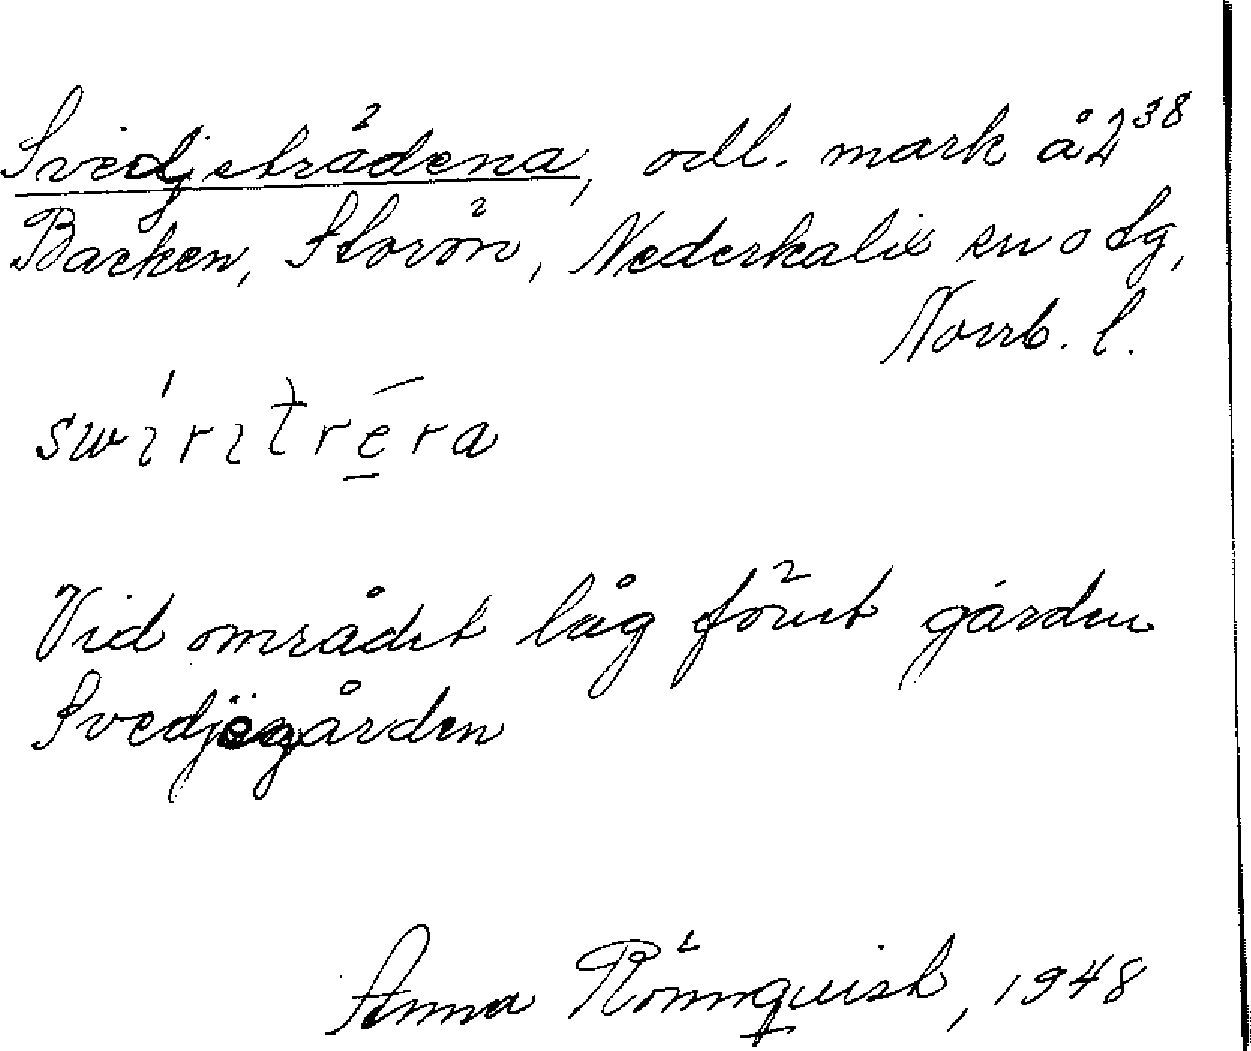 Svedjeträdena, odl. mark å 2³⁸
Backen, Storön, Nederkalix sn o tg,
Norrb. l.
swıŕıtrēra
Vid området låg förut gården
Svedjegården
Anna Rönnquist, 1948